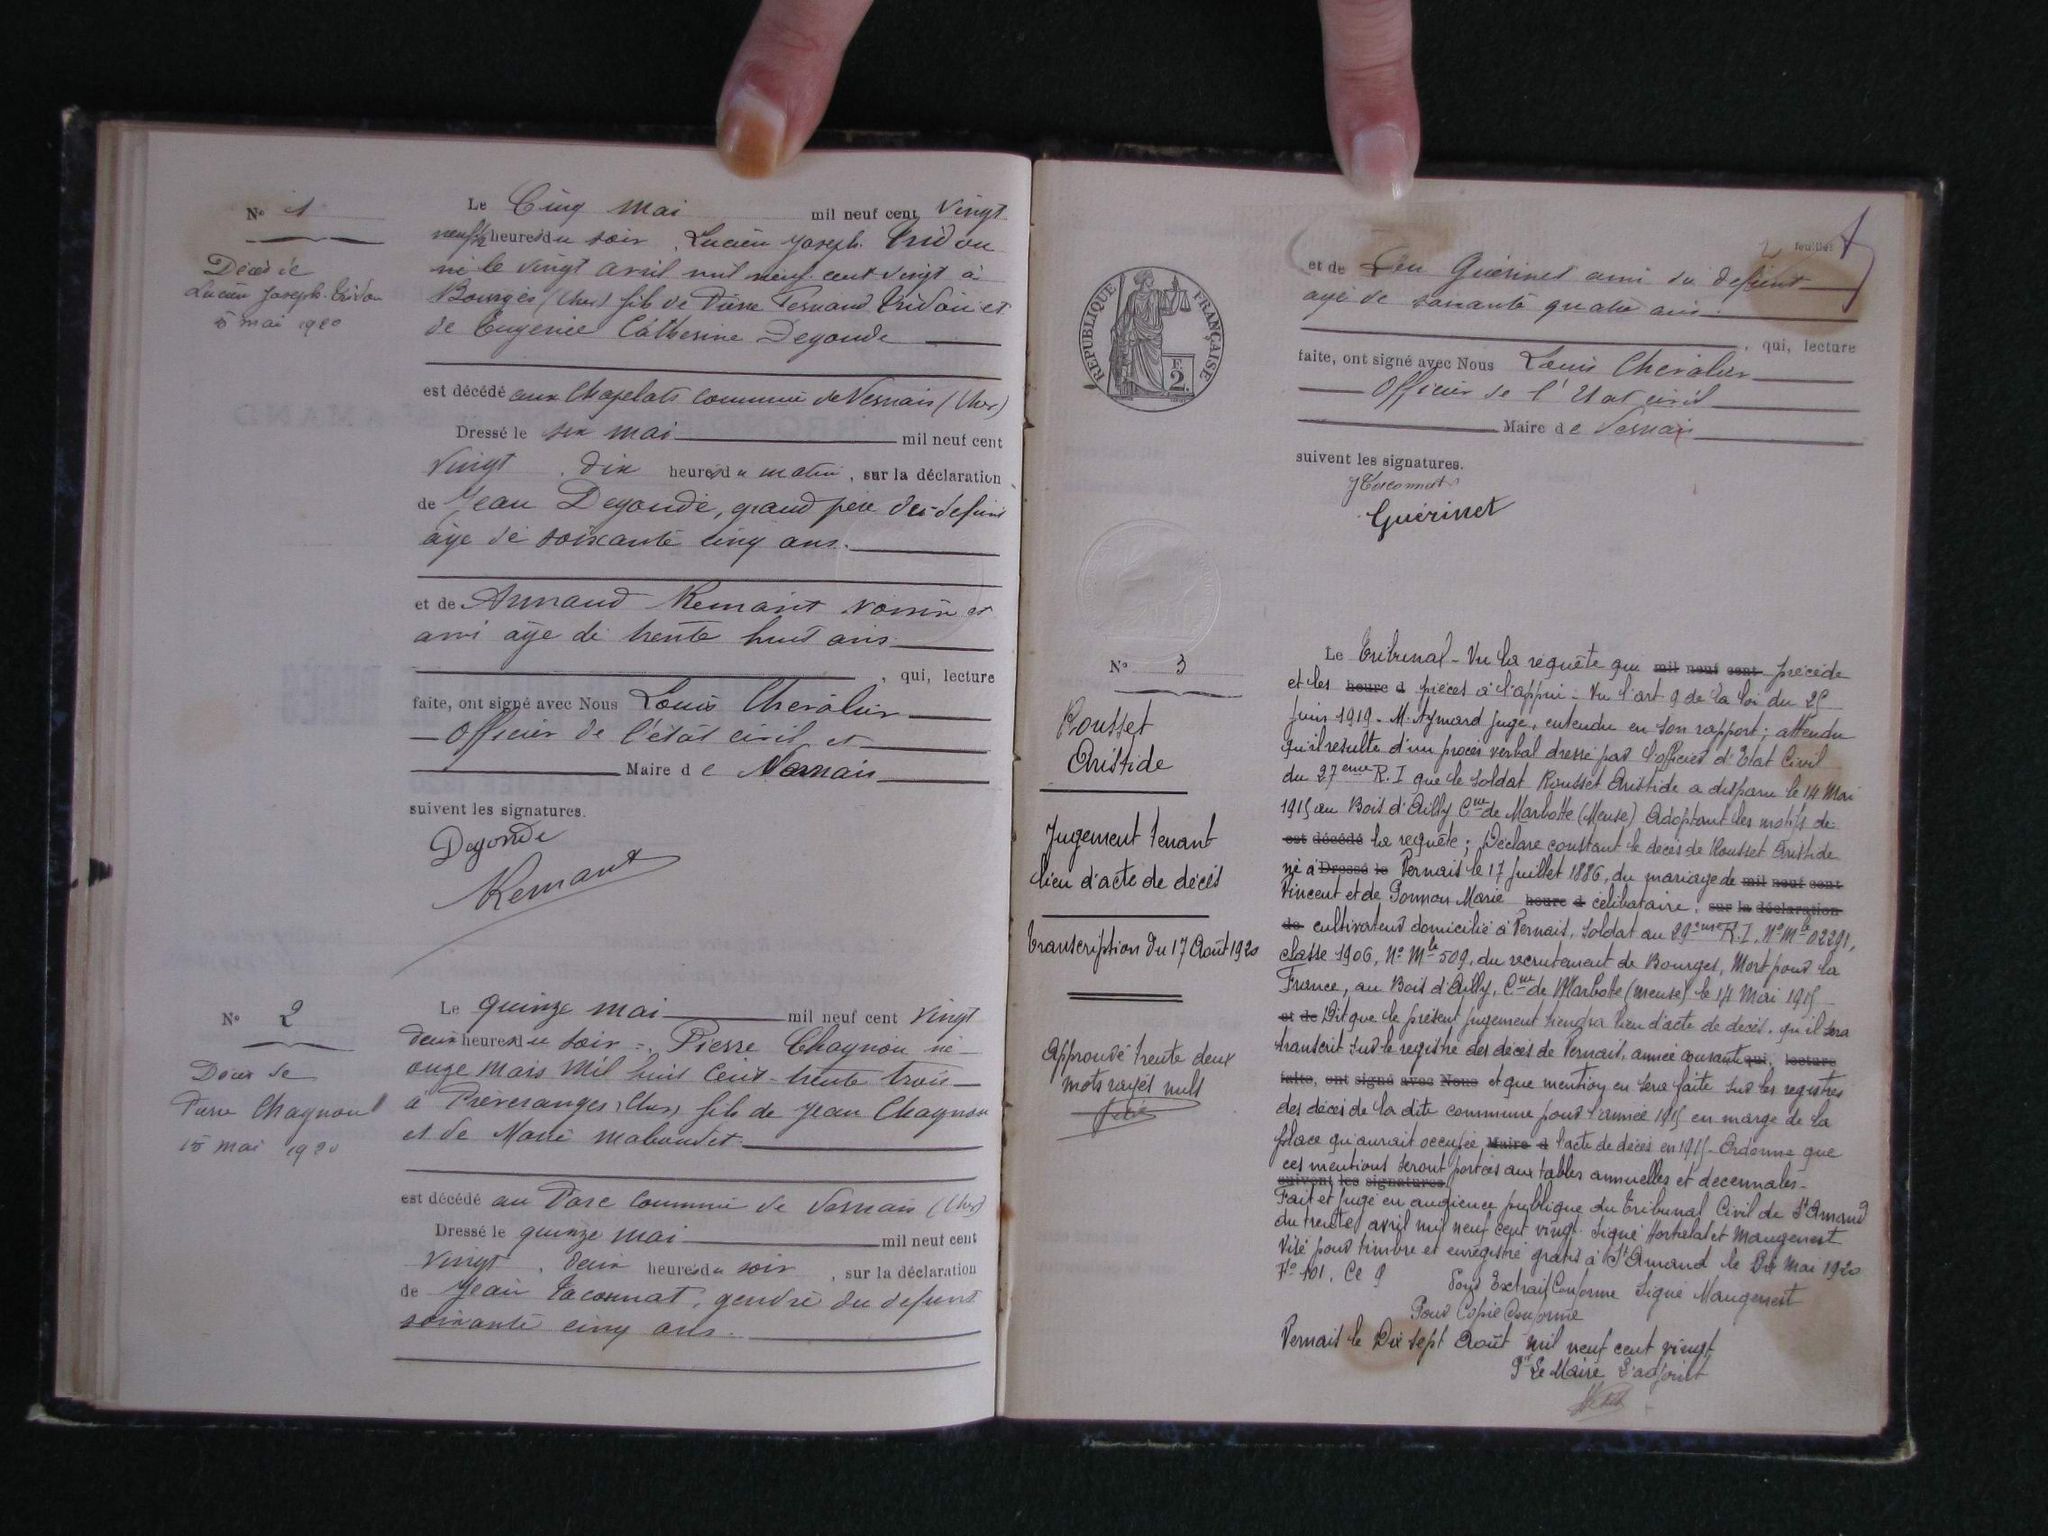 N° 1
Décès de
Lucien Joseph Tridon
5 mai 1920
Le Cinq mai mil neuf cent vingt
neuf ½ heures du soir, Lucien Joseph Tridon
né le vingt avril mil neuf cent vingt à
Bourges (Cher) fils de Pierre Fernand Tridon et
de Eugénie Catherine Degonde
est décédé aux Chapelats commune de Vernais (Cher)
Dressé le six mai mil neuf cent
vingt, dix heures du matin, sur la déclaration
de Jean Degonde, grand père du defunt
âge de soixante cinq ans.
et de Armand Remant voisin et
ami âge de trente huit ans
, qui, lecture
faite, ont signé avec Nous Louis Chevalier
Officier de l'état civil et
Maire de Vernais
suivent les signatures.
Degonde
Remant
N° 2
Décès de
Pierre Chagnon
15 mai 1920
Le quinze mai mil neuf cent vingt
deux heures du soir, Pierre Chagnon né
onze mars mil huit cent trente trois
à Préveranges (Cher) fils de Jean Chagnon
et de Marie
est décédé au Parc commune de Vernais (Cher)
Dressé le quinze mai mil neuf cent
vingt, deux heures du soir, sur la déclaration
de Jean Taconnat, gendre du defunt
soixante cinq ans.
2 feuillet
RÉPUBLIQUE FRANÇAISE
F. 2
et de Guérinet ami du defunt
age de soixante quatre ans.
, qui, lecture
faite, ont signé avec Nous Louis Chevalier
Officier de l'Etat civil
Maire de Vernais
suivent les signatures.
JTaconnat
Guérinet
N° 3
Rousset
Aristide
Jugement tenant
lieu d'acte de décès
Transcription du 17 Août 1920
Approuvé trente deux
mots rayés nuls
Le Tribunal - Vu la requête qui mil neuf cent précède
et les heure d pièces à l'appui - Vu l'art 9 de la loi du 25
Juin 1919 - M. Aymard juge, entendu en son rapport ; attendu
qu'il résulte d'un procès verbal dressé par l'officier d'Etat Civil
du 27eme R.I que le soldat Rousset Aristide a disparu le 14 Mai
1915 au Bois d'Ailly Cne de Marbotte (Meuse) Adoptant les motifs de
est décédé la requête ; Déclare constant le décès de Rousset Aristide
né à Dressé le Vernais le 17 Juillet 1886, du mariage de mil neuf cent
Vincent et de Gonnon Marie heure d célibataire, sur la déclaration
de cultivateur domicilié à Vernais, Soldat au 29eme R.I. N° Mle 02291,
classe 1906, N° Mle 509, du recrutement de Bourges, Mort pour la
France, au Bois d'Ailly, Cne de Marbotte (Meuse) le 14 Mai 1915
et de Dit que le présent jugement tiendra lieu d'acte de décès, qu'il sera
transcrit sur le registre des décès de Vernais, année courante qui, lecture
faite, ont signé avec Nous et que mention en sera faite sur les registres
des décès de la dite commune pour l'année 1915 en marge de la
place qu'aurait occupée Maire d l'acte de décès en 1915 - Ordonne que
ces mentions seront portées aux tables annuelles et décennales -
suivent les signatures.
Fait et jugé en audience publique du Tribunal Civil de St Amand
du trente avril mil neuf cent vingt. Signé Hortelat et Maugenest
Visé pour timbre et enregistré gratis à St Amand le Dix Mai 1920
F° 101, Ce 9 Pour Extrait Conforme Signé Maugenest
Pour Copie Conforme
Vernais le Dix sept Août mil neuf cent vingt
Pr Le Maire L'adjoint